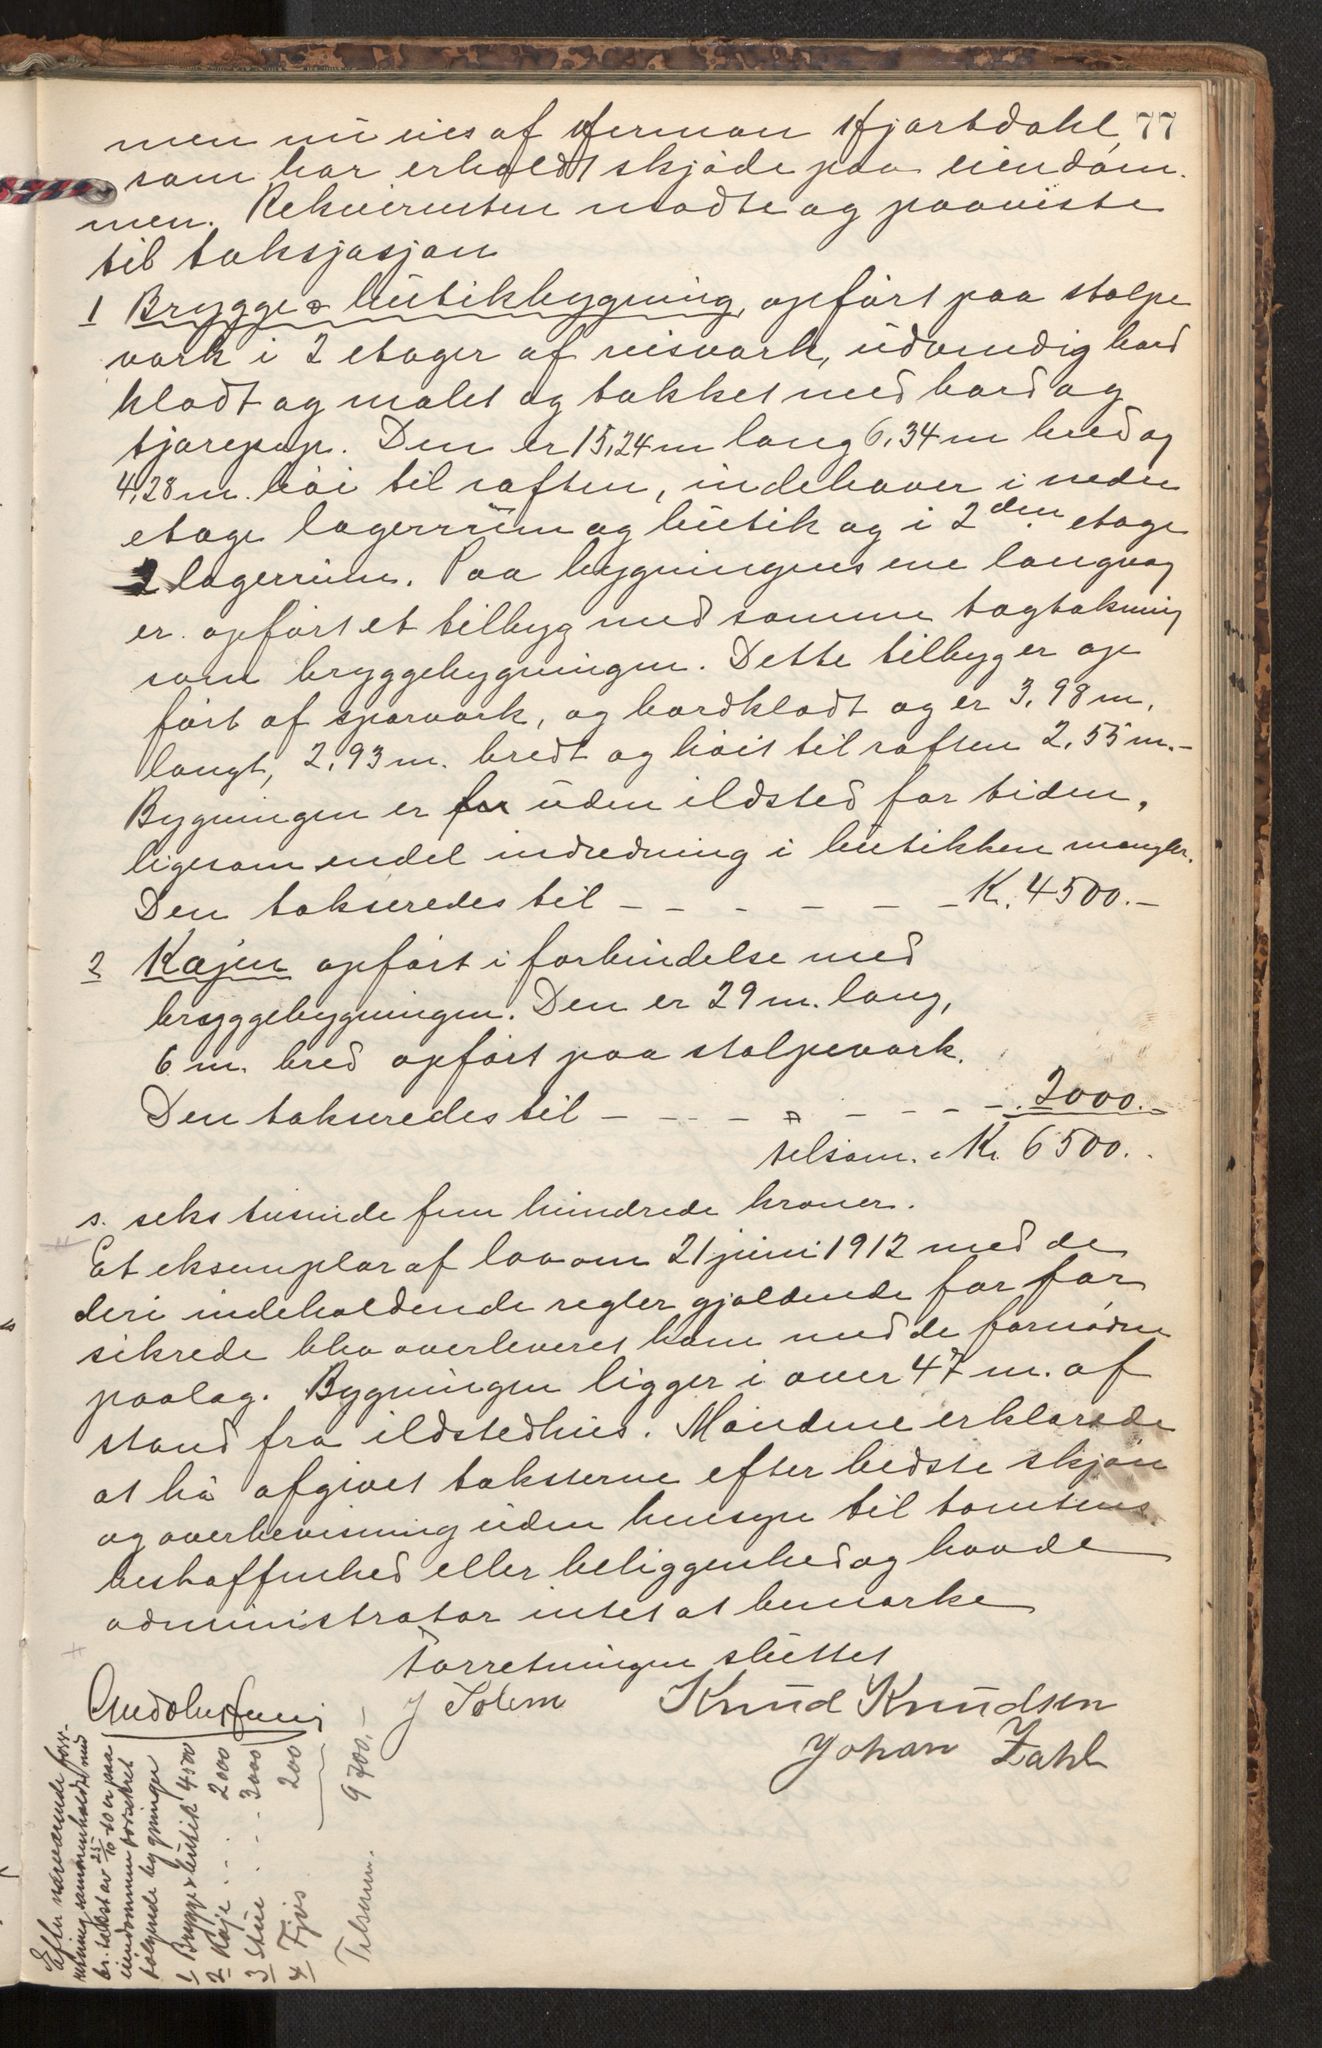 77
men nu eies af Herman Hjartdahl
som har erholdt skjøde paa eiendom-
men. Rekvirenten mødte og paaviste
til taksjasjon
1 Brygge & butikbygning, opført paa stolpe
værk i 2 etager af reisværk, udvendig bord
klædt og malet og tækket med bord og
tjærepap. Den er 15,24 m lang 6,34 m bred og
4,28 m. høi til raften, indehaver i nedre
etage lagerrum og butik og i 2den etage
2 lagerrum. Paa bygningens ene langvæg
er opført et tilbyg med samme tagtækning
som bryggebygningen. Dette tilbyg er op
ført af sparværk, og bordklædt og er 3,98 m.
langt, 2,93 m. bredt og høit til raften 2,55 m.-
Bygningen er for uden ildsted for tiden,
ligesom endel indredning i butikken mangler.
Den takseredes til - - - - - - K. 4500.-
2 Kajen opført i forbindelse med
bryggebygningen. Den er 29 m. lang,
6 m. bred opført paa stolpeværk.
Den takseredes til - - - - - - - - 2000.-
tilsam. Kr. 6500.
s. seks tusinde fem hundrede kroner.
Et eksemplar af lov om 21 juni 1912 med de
deri indeholdende regler gjældende for for
sikrede blev overleveret ham med de fornødne
paalæg. Bygningen ligger i over 47 m. af
stand fra ildstedhus. Mændene erklærede
at ha afgivet taksterne efter bedste skjøn
og overbevisning uden hensyn til tomtens
beskaffenhed eller beliggenhed og havde
administrator intet at bemærke
Forretningen sluttet
J Solem Knud Knudsen
Johan Zahl
Efter nærværende forr-
retning sammenholdt med
br. takst av 25/10 10 er paa
eiendommen forsikret
følgende bygninger
1 Brygge & butik 4500
2 Kaje . . . 2000
3 Stue . . . 3000
4 Fjøs 200
Tilsam. 9700.-